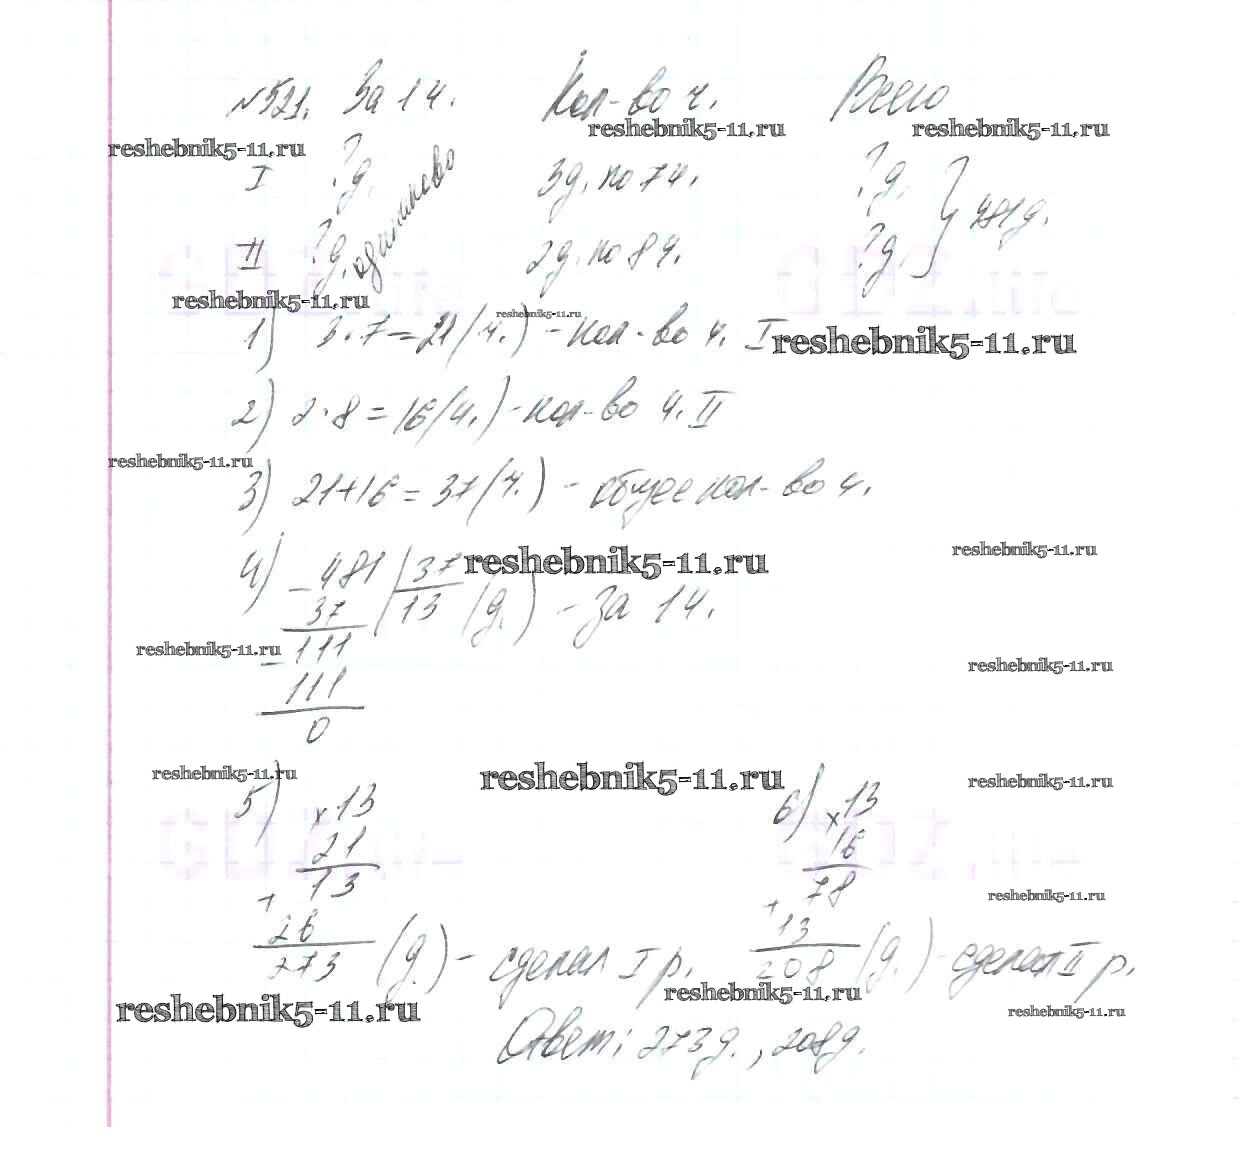 №521. За 1 ч. Кол-во ч. Всего
reshebnik5-11.ru reshebnik5-11.ru reshebnik5-11.ru
I ? д. одинаково 3 д. по 7 ч. ? д. } 481 д.
II ? д. 2 д. по 8 ч. ? д.
reshebnik5-11.ru reshebnik5-11.ru
1) 3·7=21(ч.) - кол-во ч. I reshebnik5-11.ru
2) 2·8=16(ч.) - кол-во ч. II
reshebnik5-11.ru
3) 21+16=37(ч.) - общее кол-во ч.
reshebnik5-11.ru reshebnik5-11.ru
4) - 481 | 37
37 | 13 (д.) - за 1 ч.
reshebnik5-11.ru - 111 reshebnik5-11.ru
111
0
reshebnik5-11.ru reshebnik5-11.ru reshebnik5-11.ru
5) x 13 6) x 13
21 16
+ 13 + 78 reshebnik5-11.ru
26 13
273 (д.) - сделал I р. 208 (д.) - сделал II р.
reshebnik5-11.ru reshebnik5-11.ru reshebnik5-11.ru
Ответ: 273 д., 208 д.